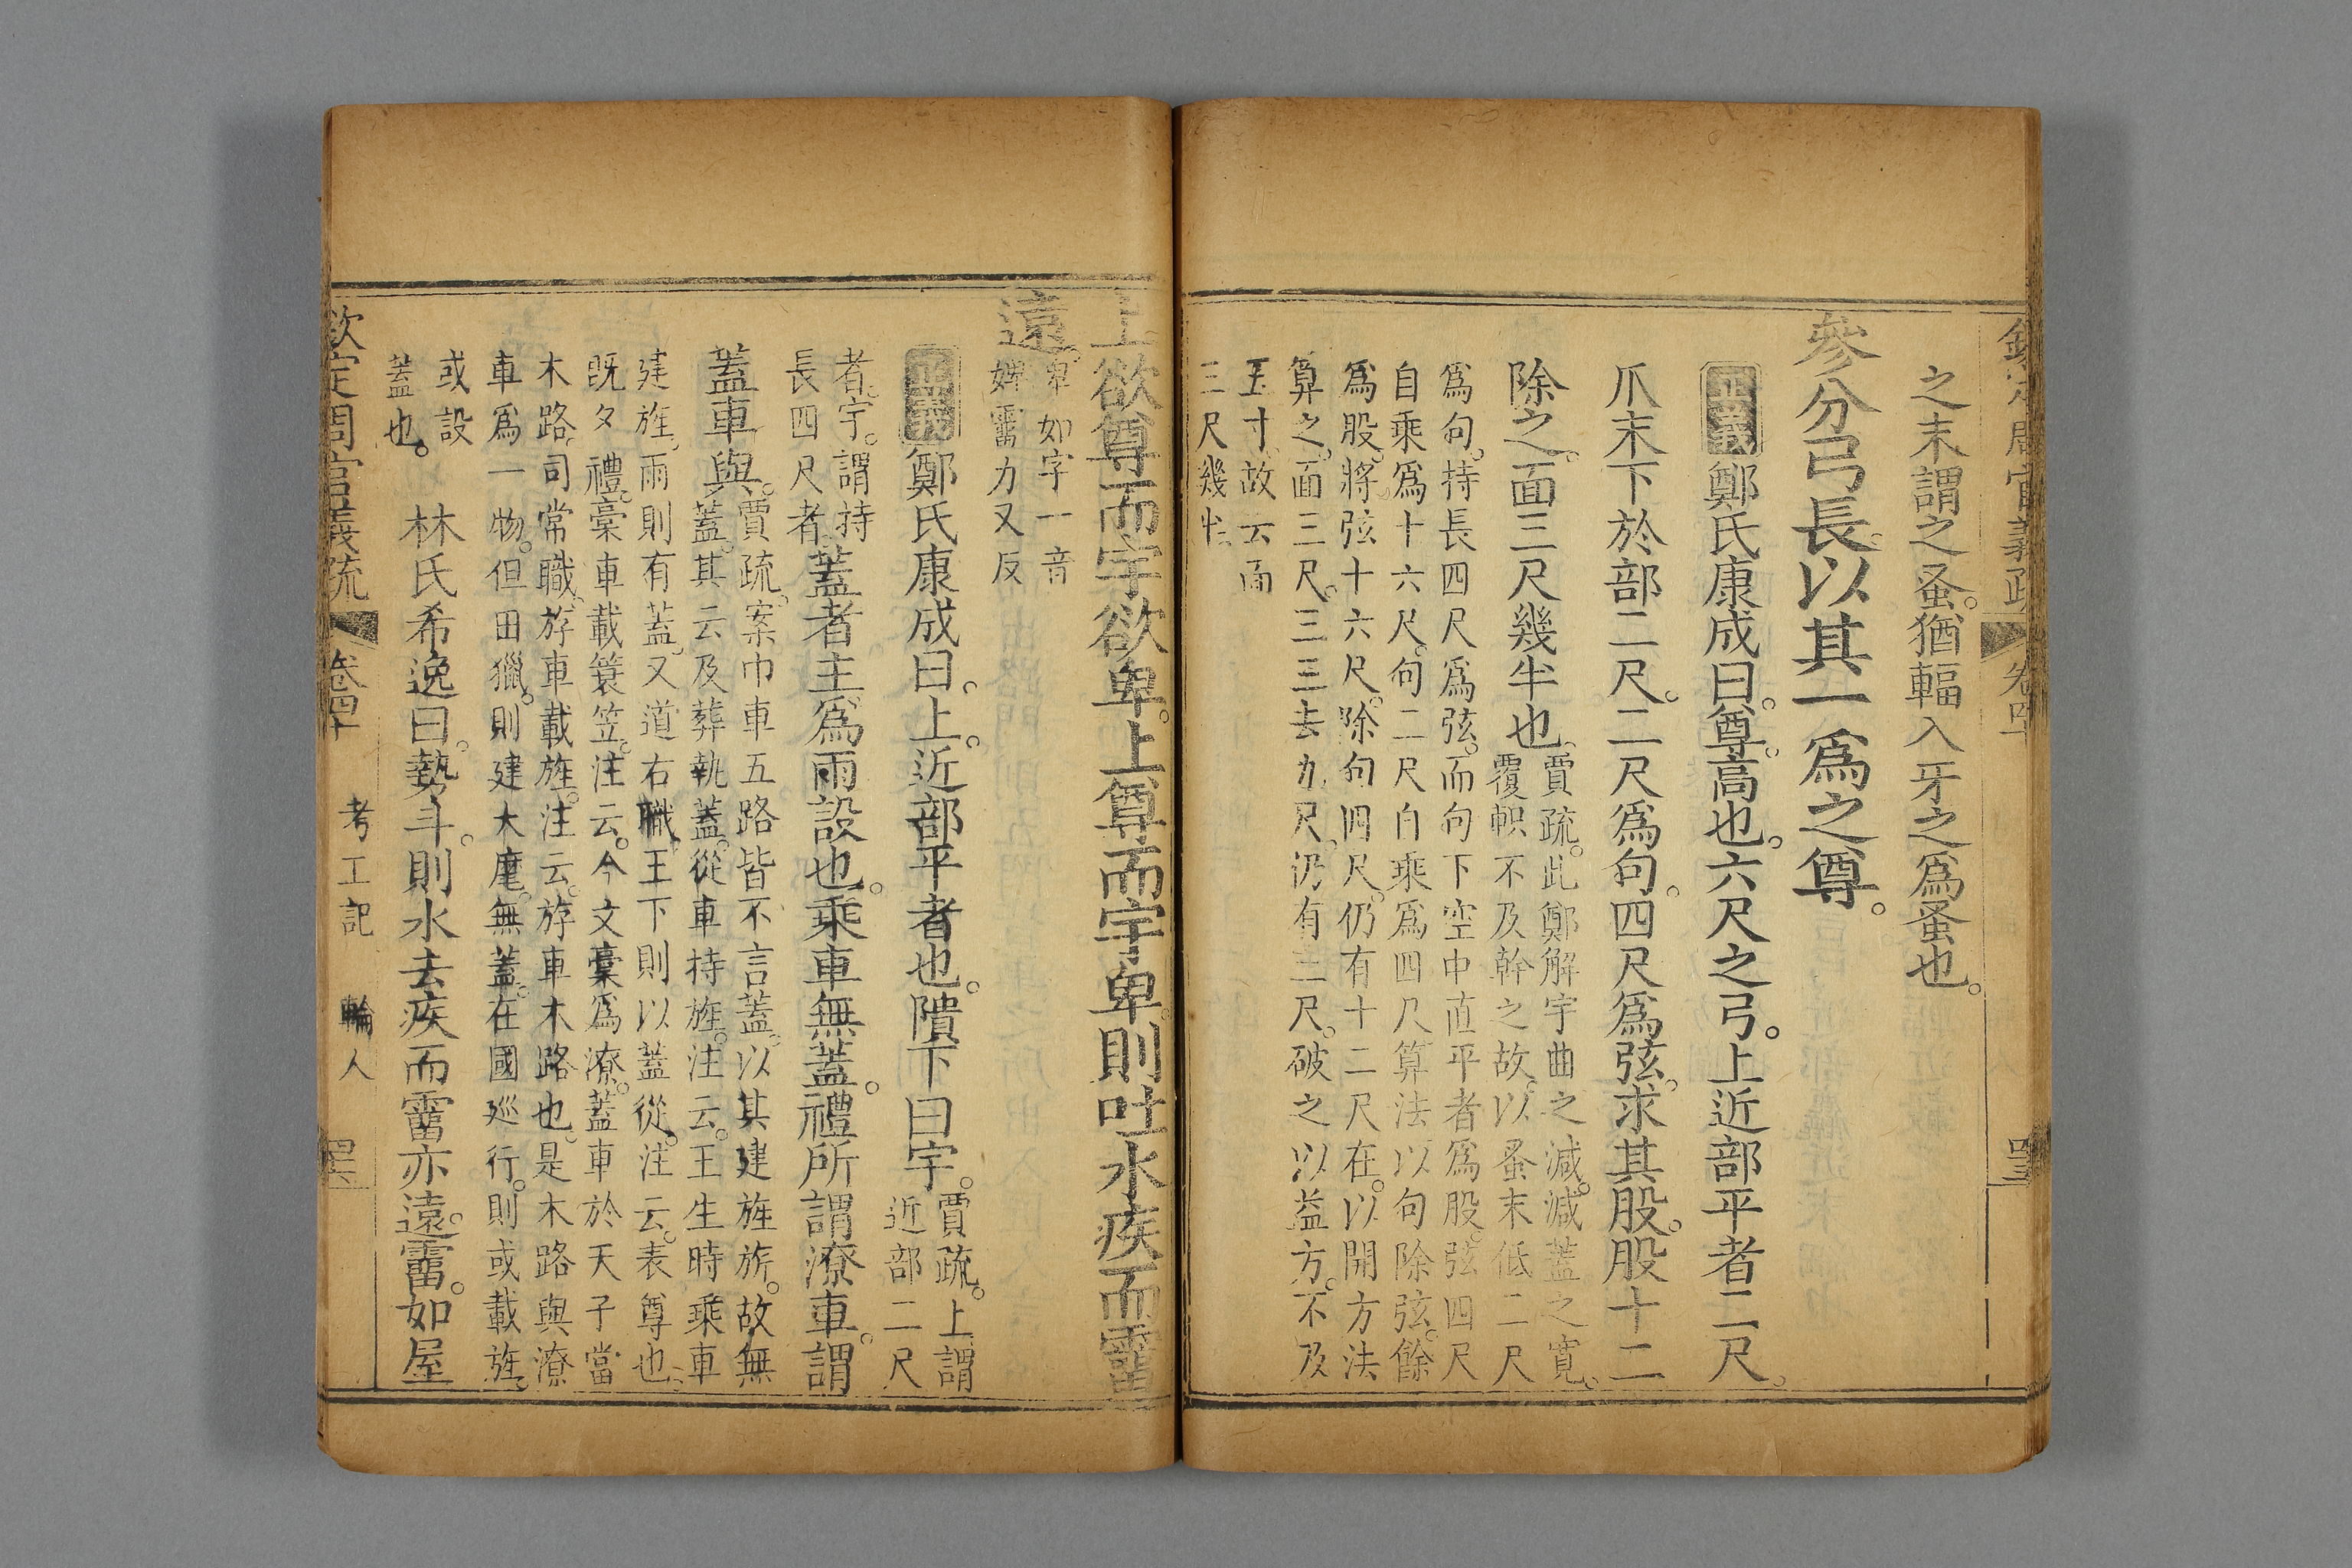 欽定周官義疏 卷四十
之末謂之蚤。猶輻入牙之爲蚤也。
參分弓長。以其一爲之尊。
正義 鄭氏康成曰。尊。高也。六尺之弓。上近部平者二尺。
爪末下於部二尺。二尺爲句。四尺爲弦。求其股。股十二
除之。面三尺幾半也。
賈疏。此鄭解宇曲之減。減蓋之寬。
覆軹不及幹之故。以蚤末低二尺
爲句。持長四尺爲弦。而句下空中直平者爲股。弦四尺
自乘爲十六尺。句二尺自乘爲四尺。算法以句除弦。餘
爲股。將弦十六尺。除句四尺。仍有十二尺在。以開方法
算之。面三尺。三三去九尺。仍有三尺。破之以益方。不及
五寸。故云面
三尺幾半
上欲尊而宇欲卑。上尊而宇卑。則吐水疾而霤
遠。
卑如字一音
婢霤力又反
正義 鄭氏康成曰。上。近部平者也。隤下曰宇。
賈疏。上謂
近部二尺
者。宇。謂持
長四尺者
蓋者主爲雨設也。乘車無蓋。禮所謂潦車。謂
蓋車與。
賈疏。案巾車五路皆不言蓋。以其建旌旂。故無
蓋。其云及葬執蓋。從車持旌。注云。王生時乘車
建旌。雨則有蓋。又道右職。王下則以蓋從。注云。表尊也。
既夕禮。槀車載簑笠。注云。今文槀爲潦。蓋車於天子當
木路。司常職。斿車載旌。注云。斿車木路也。是木路與潦
車爲一物。但田獵。則建大麾。無蓋。在國巡行。則或載旌。
或設
蓋也。
林氏希逸曰。埶斗。則水去疾而霤亦遠。霤。如屋
欽定周官義疏 卷四十 考工記 輪人